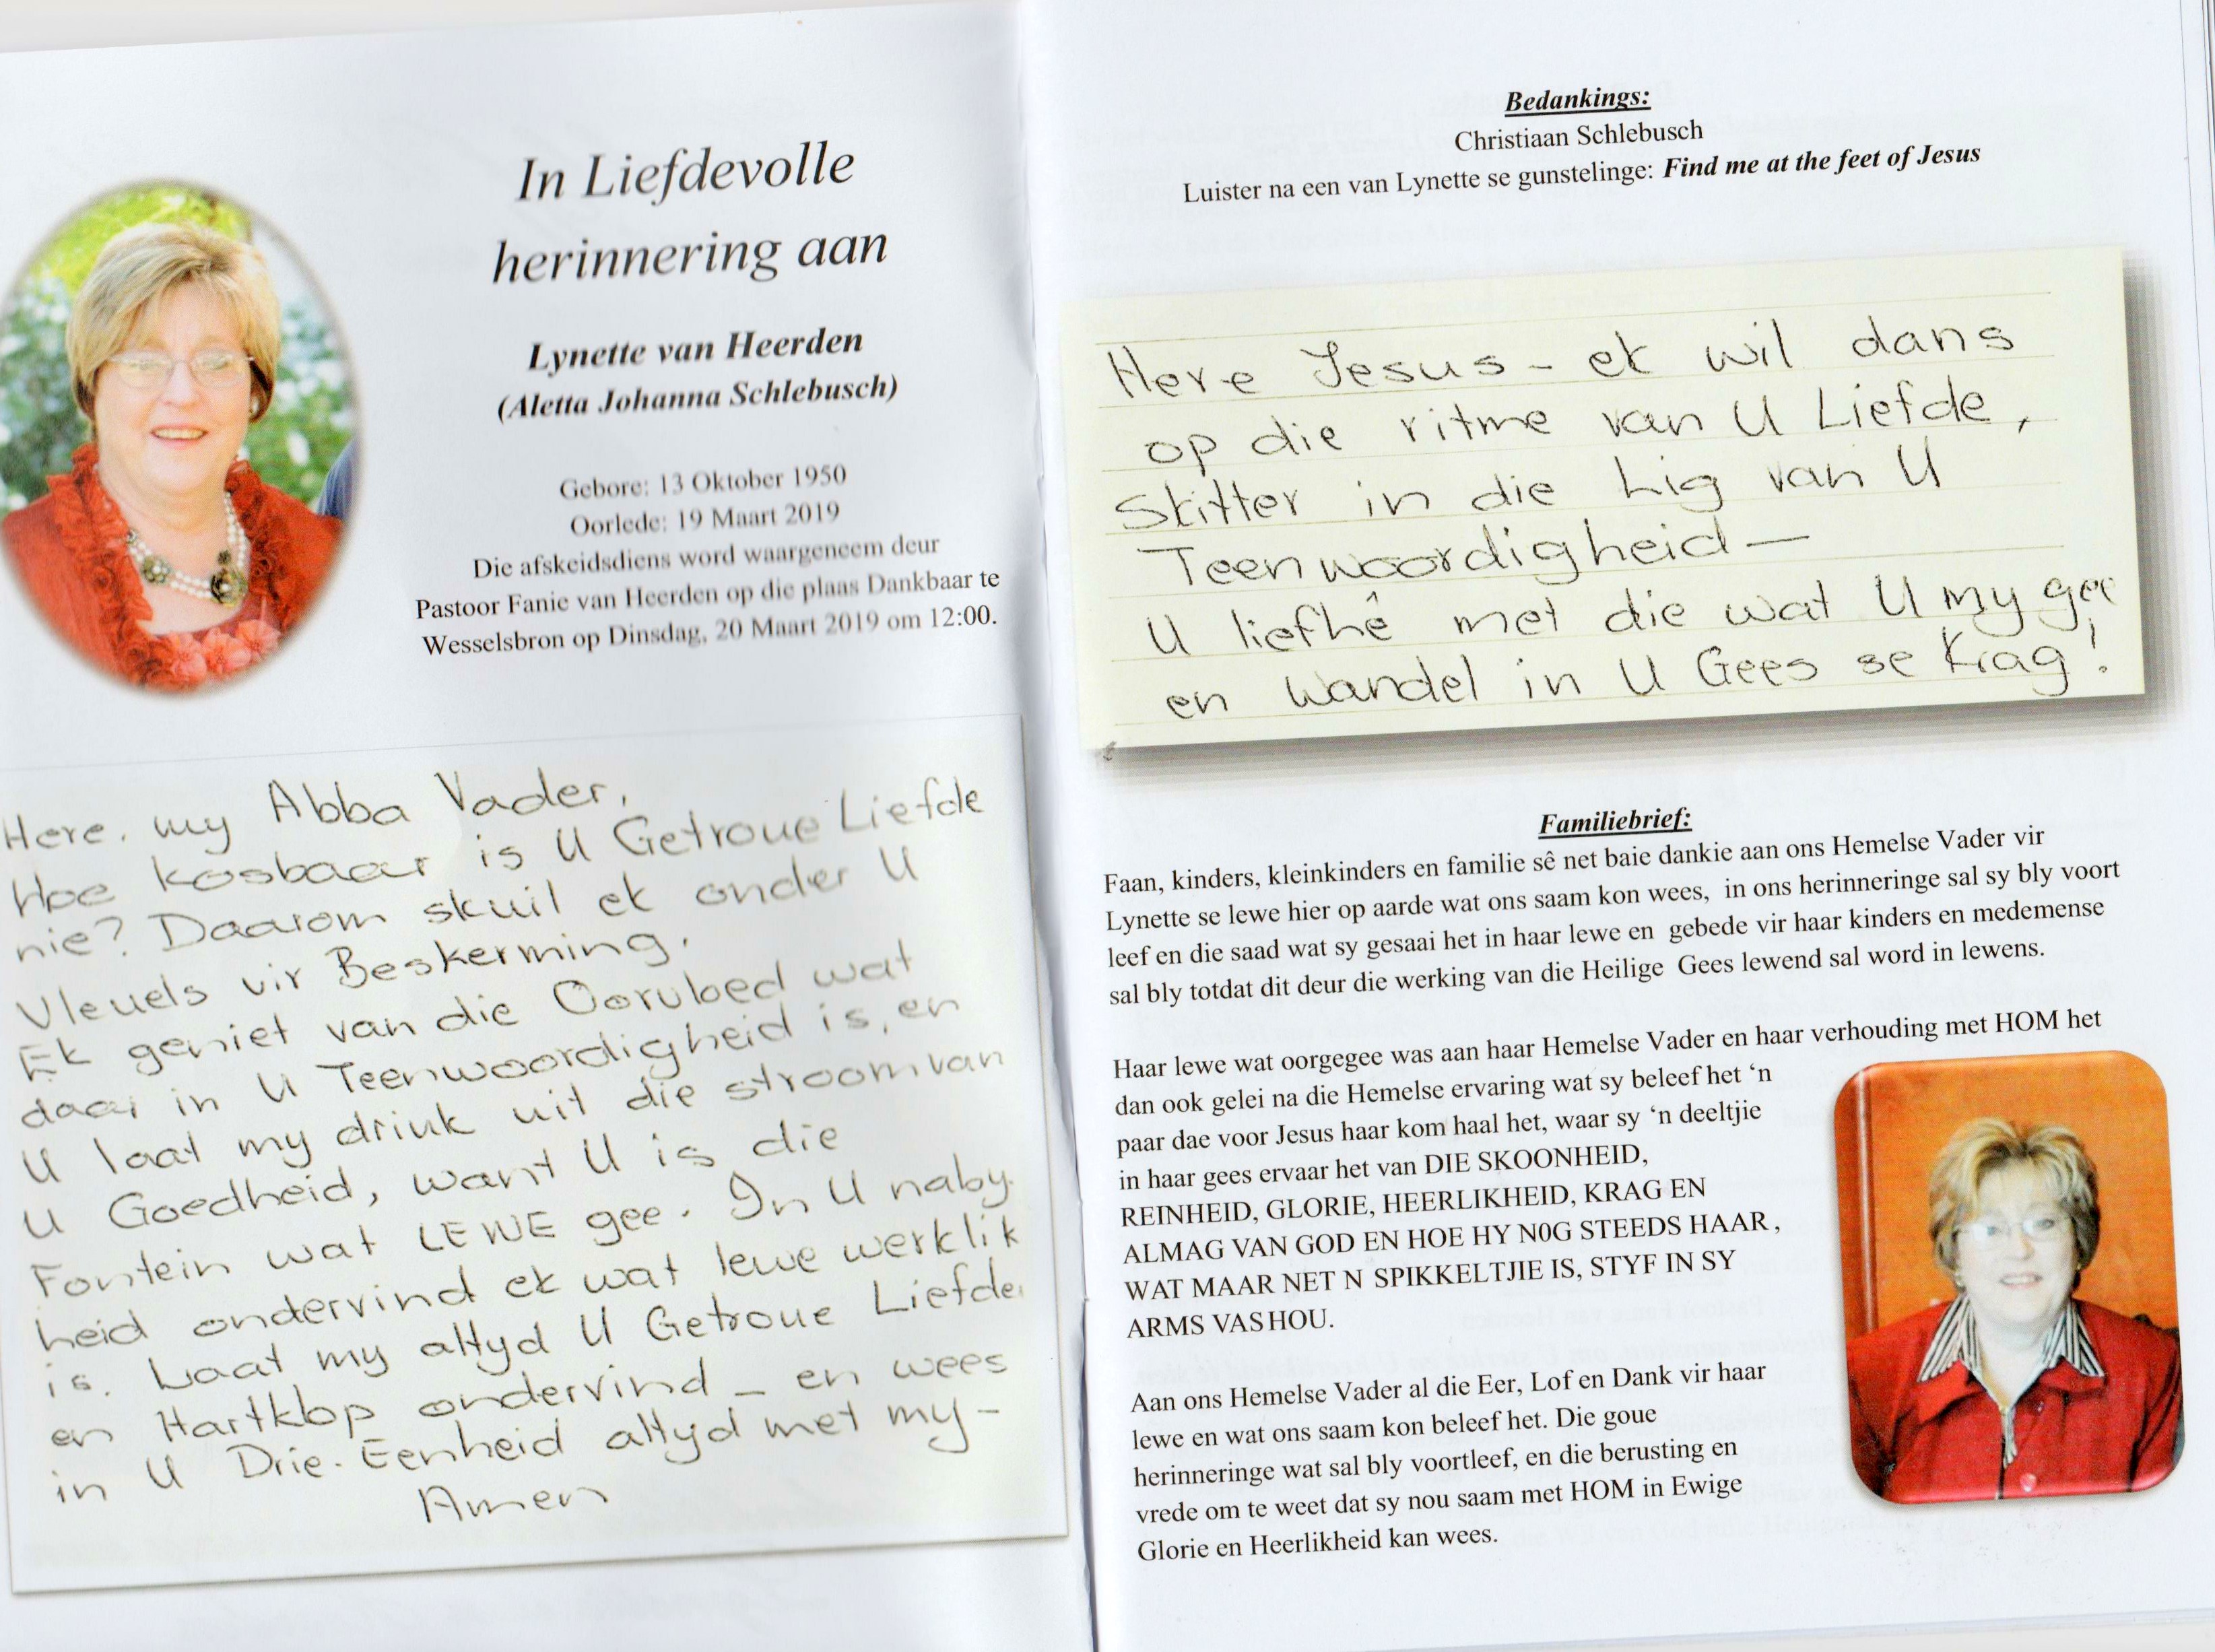 In Liefdevolle
herinnering aan
Lynette van Heerden
(Aletta Johanna Schlebusch)
Gebore: 13 Oktober 1950
Oorlede: 19 Maart 2019
Die afskeidsdiens word waargeneem deur
Pastoor Fanie van Heerden op die plaas Dankbaar te
Wesselsbron op Dinsdag, 20 Maart 2019 om 12:00.
Here, my Abba Vader,
Hoe kosbaar is U Getroue Liefde
nie? Daarom skuil ek onder U
Vleuels vir Beskerming.
Ek geniet van die Oorvloed wat
daar in U Teenwoordigheid is, en
U laat my drink uit die stroom van
U Goedheid, want U is die
Fontein wat LEWE gee. In U naby-
heid ondervind ek wat lewe werklik
is. Laat my altyd U Getroue Liefde
en Hartklop ondervind – en wees
in U Drie-Eenheid altyd met my -
Amen
Bedankings:
Christiaan Schlebusch
Luister na een van Lynette se gunstelinge: Find me at the feet of Jesus
Here Jesus - ek wil dans
op die ritme van U Liefde,
Skitter in die Lig van U
Teenwoordigheid —
U liefhê met die wat U my gee
en wandel in U Gees se Krag!
Familiebrief:
Faan, kinders, kleinkinders en familie sê net baie dankie aan ons Hemelse Vader vir
Lynette se lewe hier op aarde wat ons saam kon wees, in ons herinneringe sal sy bly voort
leef en die saad wat sy gesaai het in haar lewe en gebede vir haar kinders en medemense
sal bly totdat dit deur die werking van die Heilige Gees lewend sal word in lewens.
Haar lewe wat oorgegee was aan haar Hemelse Vader en haar verhouding met HOM het
dan ook gelei na die Hemelse ervaring wat sy beleef het ‘n
paar dae voor Jesus haar kom haal het, waar sy ‘n deeltjie
in haar gees ervaar het van DIE SKOONHEID,
REINHEID, GLORIE, HEERLIKHEID, KRAG EN
ALMAG VAN GOD EN HOE HY N0G STEEDS HAAR ,
WAT MAAR NET N SPIKKELTJIE IS, STYF IN SY
ARMS VASHOU.
Aan ons Hemelse Vader al die Eer, Lof en Dank vir haar
lewe en wat ons saam kon beleef het. Die goue
herinneringe wat sal bly voortleef, en die berusting en
vrede om te weet dat sy nou saam met HOM in Ewige
Glorie en Heerlikheid kan wees.